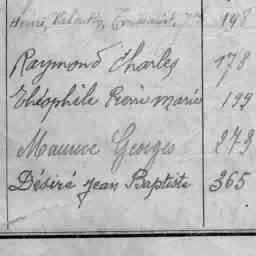 Henri, Valentin, Toussaint, 198
Raymond Charles 178
Théophile Pierre Marie 199
Maurice Georges 273
Désiré Jean Baptiste 365